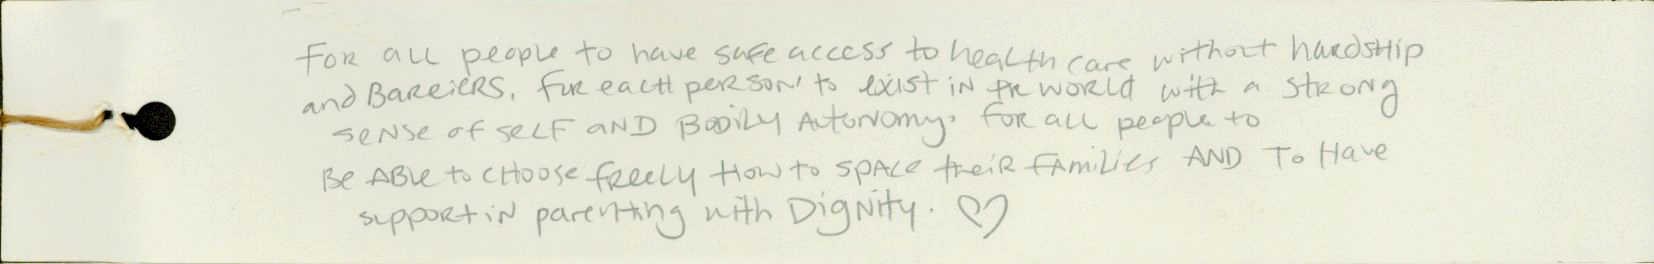 For all people to have safe access to health care without hardship
and Barriers. For each person to exist in the world with a strong
sense of self and Bodily Autonomy. For all people to
Be Able to choose freely How to space their families AND To Have
support in parenting with Dignity. ♡